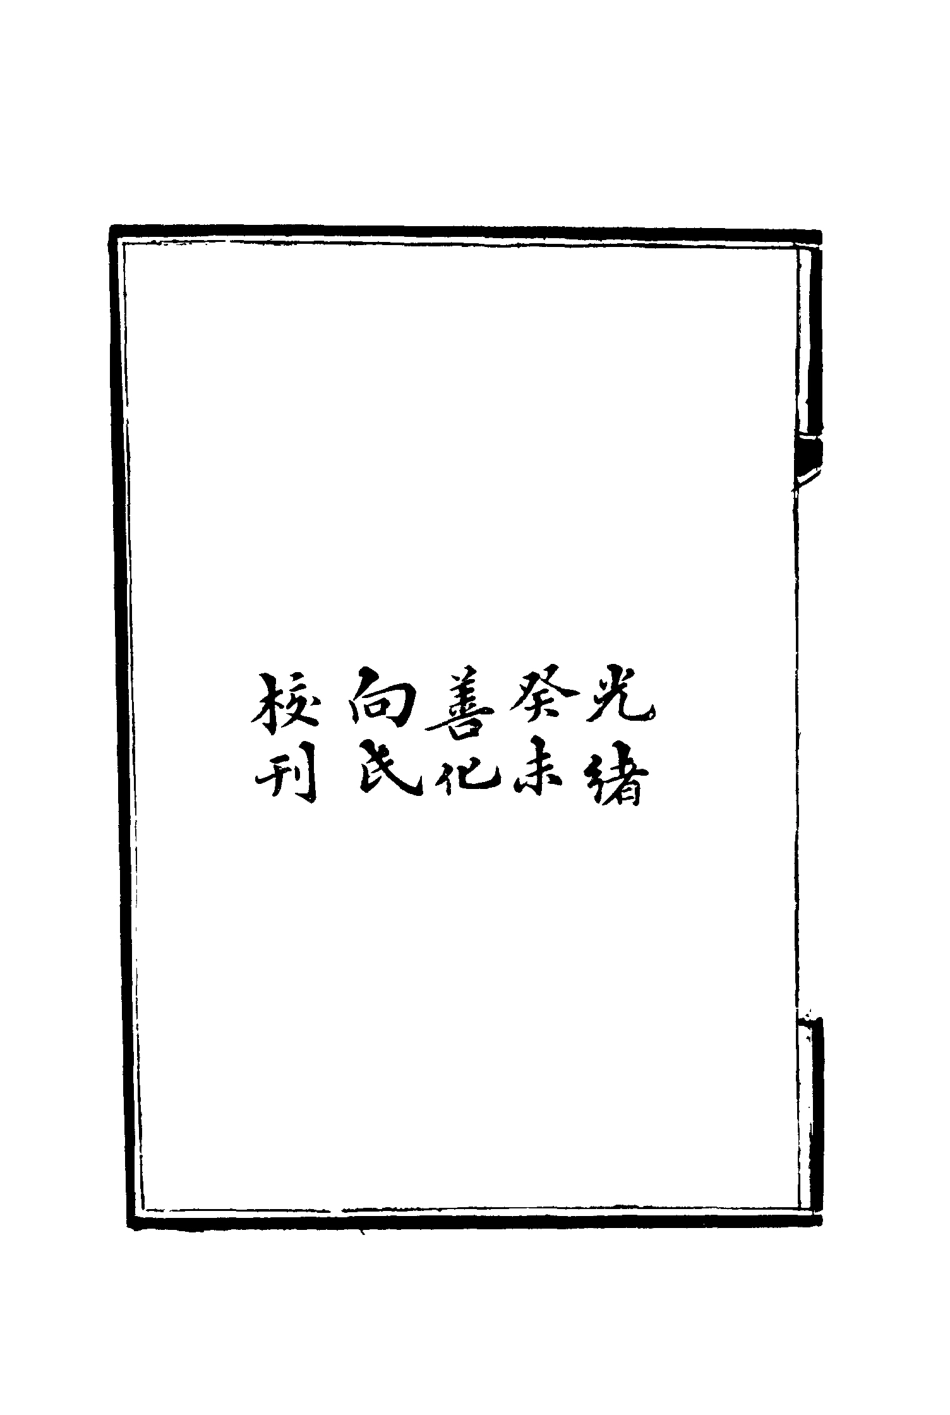 光緒
癸未
善化
向氏
校刊